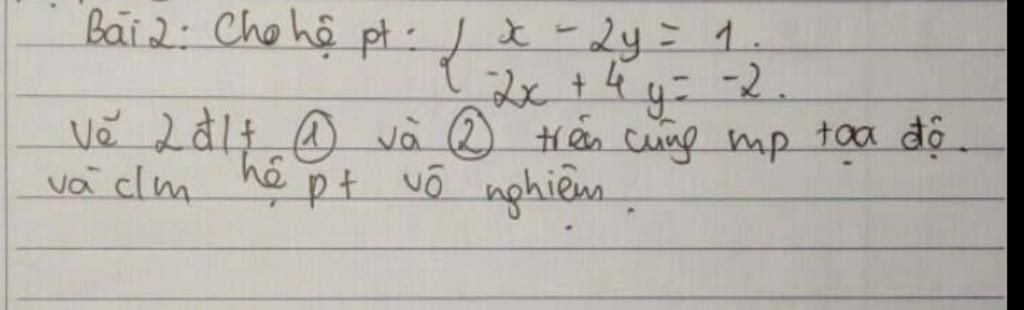 Bài 2: Cho hệ pt: { x - 2y = 1.
-2x + 4y = -2.
Vẽ 2 đ/t ① và ② trên cùng mp tọa độ.
và c/m hệ pt vô nghiệm.